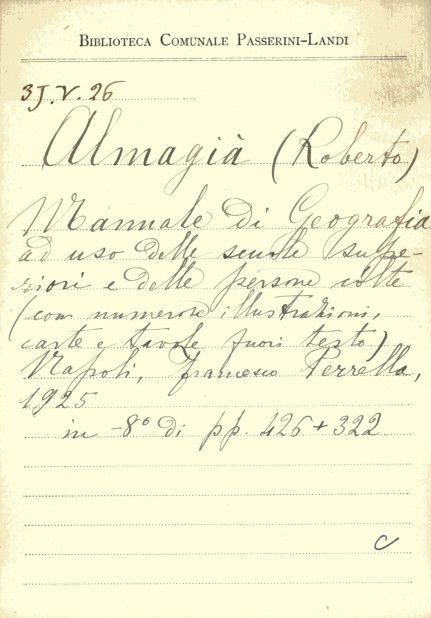 BIBLIOTECA COMUNALE PASSERINI-LANDI
3J.V.26
Almagià (Roberto)
Manuale di Geografia
ad uso delle scuole supe-
riori e delle persone colte
(con numerose illustrazioni,
carte e tavole fuori testo)
Napoli, Francesco Perrella,
1925
in -8° di pp. 426 + 322
C